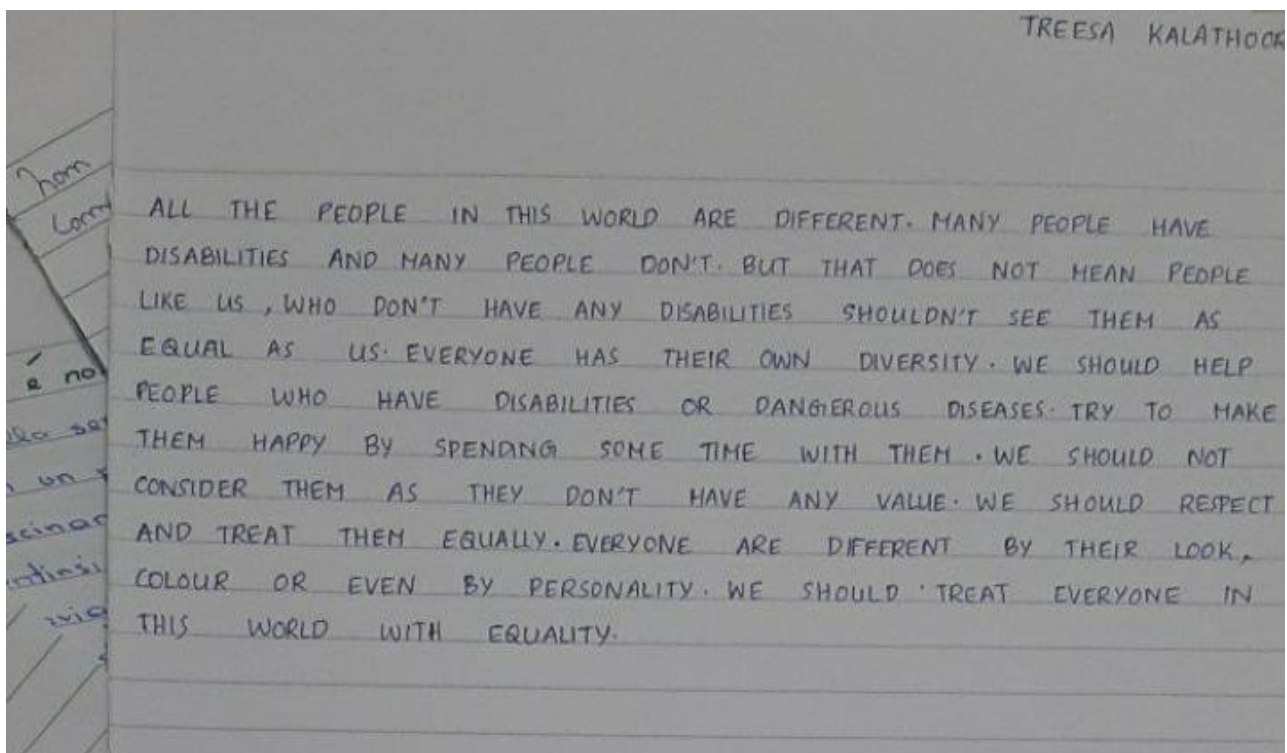 TREESA KALATHOOR
ALL THE PEOPLE IN THIS WORLD ARE DIFFERENT. MANY PEOPLE HAVE
DISABILITIES AND MANY PEOPLE DON'T. BUT THAT DOES NOT MEAN PEOPLE
LIKE US, WHO DON'T HAVE ANY DISABILITIES SHOULDN'T SEE THEM AS
EQUAL AS US. EVERYONE HAS THEIR OWN DIVERSITY. WE SHOULD HELP
PEOPLE WHO HAVE DISABILITIES OR DANGEROUS DISEASES. TRY TO MAKE
THEM HAPPY BY SPENDING SOME TIME WITH THEM. WE SHOULD NOT
CONSIDER THEM AS THEY DON'T HAVE ANY VALUE. WE SHOULD RESPECT
AND TREAT THEM EQUALLY. EVERYONE ARE DIFFERENT BY THEIR LOOK,
COLOUR OR EVEN BY PERSONALITY. WE SHOULD TREAT EVERYONE IN
THIS WORLD WITH EQUALITY.
è no
un